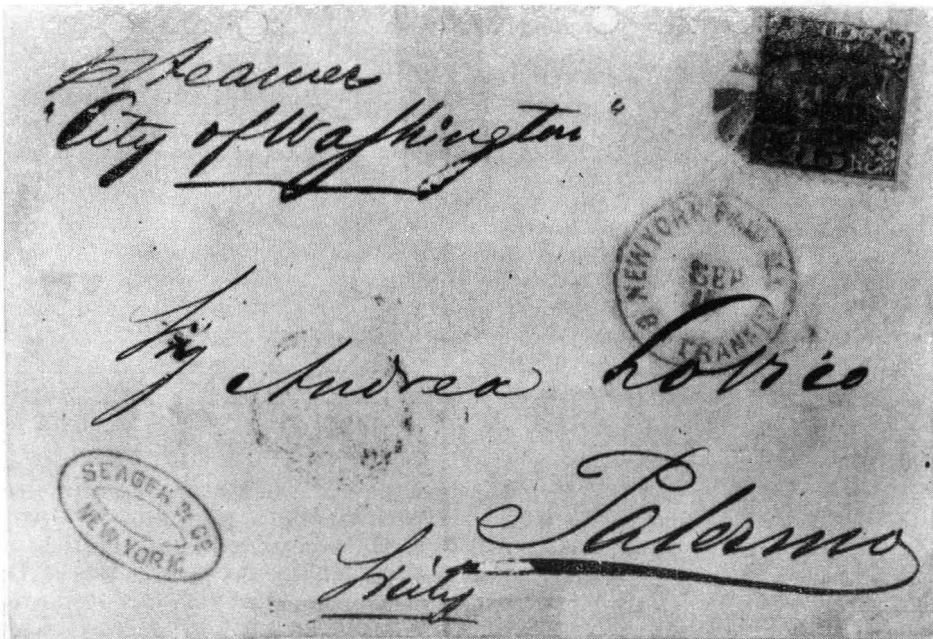 p Steamer
"City of Washington"
NEW YORK PAID ALL
SEP
TRANSIT
Sig Andrea Lovico
SEAGER & CO
NEW YORK
Palermo
Sicily
15